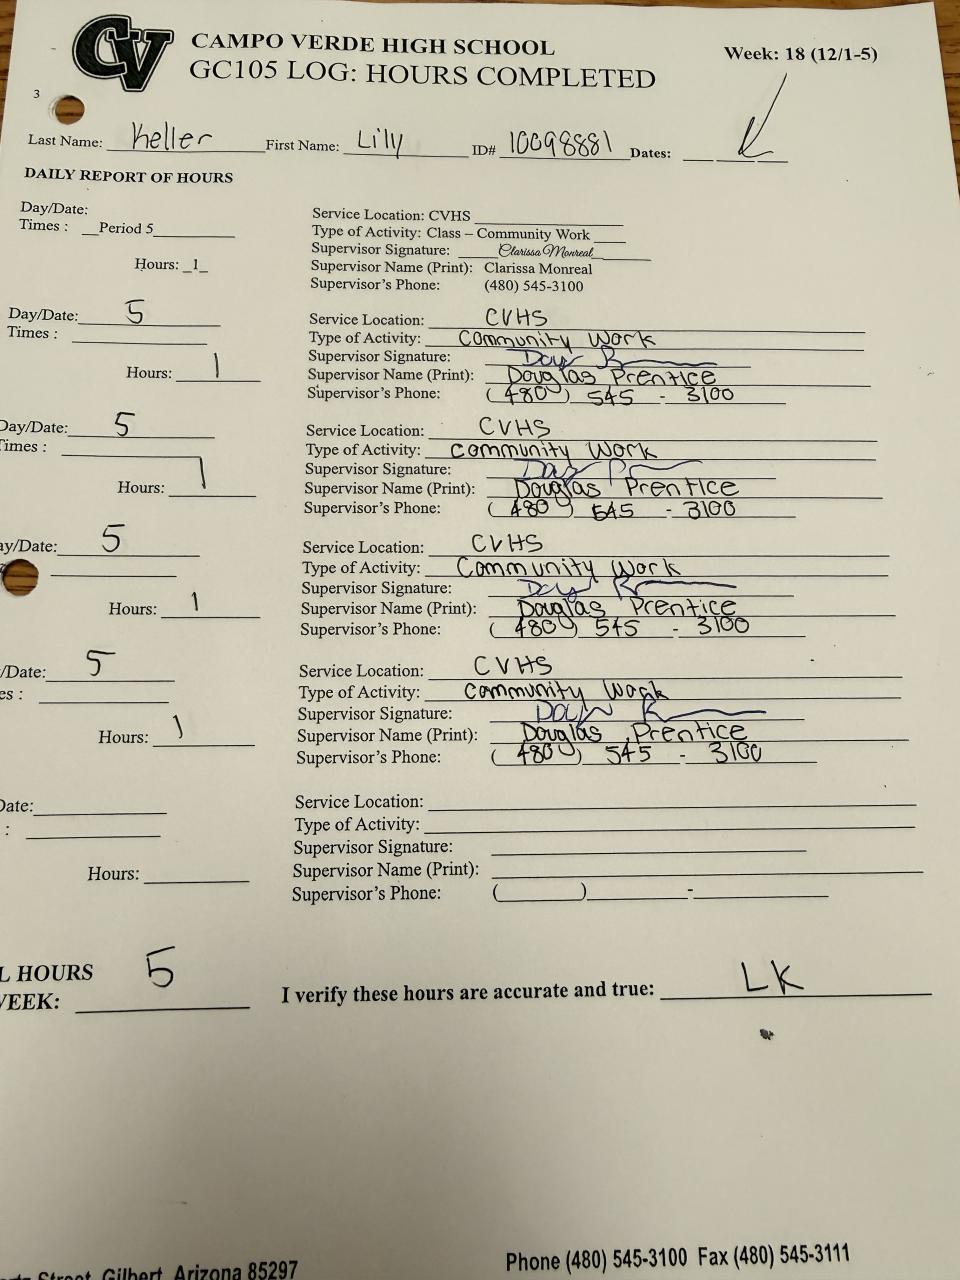 CV CAMPO VERDE HIGH SCHOOL
Week: 18 (12/1-5)
GC105 LOG: HOURS COMPLETED
3
Last Name: Keller First Name: Lilly ID# 10098881 Dates:
DAILY REPORT OF HOURS
Day/Date:
Times : __Period 5__
Hours: _1_
Service Location: CVHS
Type of Activity: Class – Community Work
Supervisor Signature: Clarissa Monreal
Supervisor Name (Print): Clarissa Monreal
Supervisor's Phone: (480) 545-3100
Day/Date: 5
Times :
Hours: 1
Service Location: CVHS
Type of Activity: Community Work
Supervisor Signature:
Supervisor Name (Print): Douglas Prentice
Supervisor's Phone: (480) 545 - 3100
Day/Date: 5
Times :
Hours: 1
Service Location: CVHS
Type of Activity: Community Work
Supervisor Signature:
Supervisor Name (Print): Douglas Prentice
Supervisor's Phone: (480) 545 - 3100
ay/Date: 5
Hours: 1
Service Location: CVHS
Type of Activity: Community Work
Supervisor Signature:
Supervisor Name (Print): Douglas Prentice
Supervisor's Phone: (480) 545 - 3100
/Date: 5
es :
Hours: 1
Service Location: CVHS
Type of Activity: Community Work
Supervisor Signature:
Supervisor Name (Print): Douglas Prentice
Supervisor's Phone: (480) 545 - 3100
Date:
:
Hours:
Service Location:
Type of Activity:
Supervisor Signature:
Supervisor Name (Print):
Supervisor's Phone: ( ) -
L HOURS
WEEK: 5
I verify these hours are accurate and true: LK
Street, Gilbert, Arizona 85297
Phone (480) 545-3100 Fax (480) 545-3111